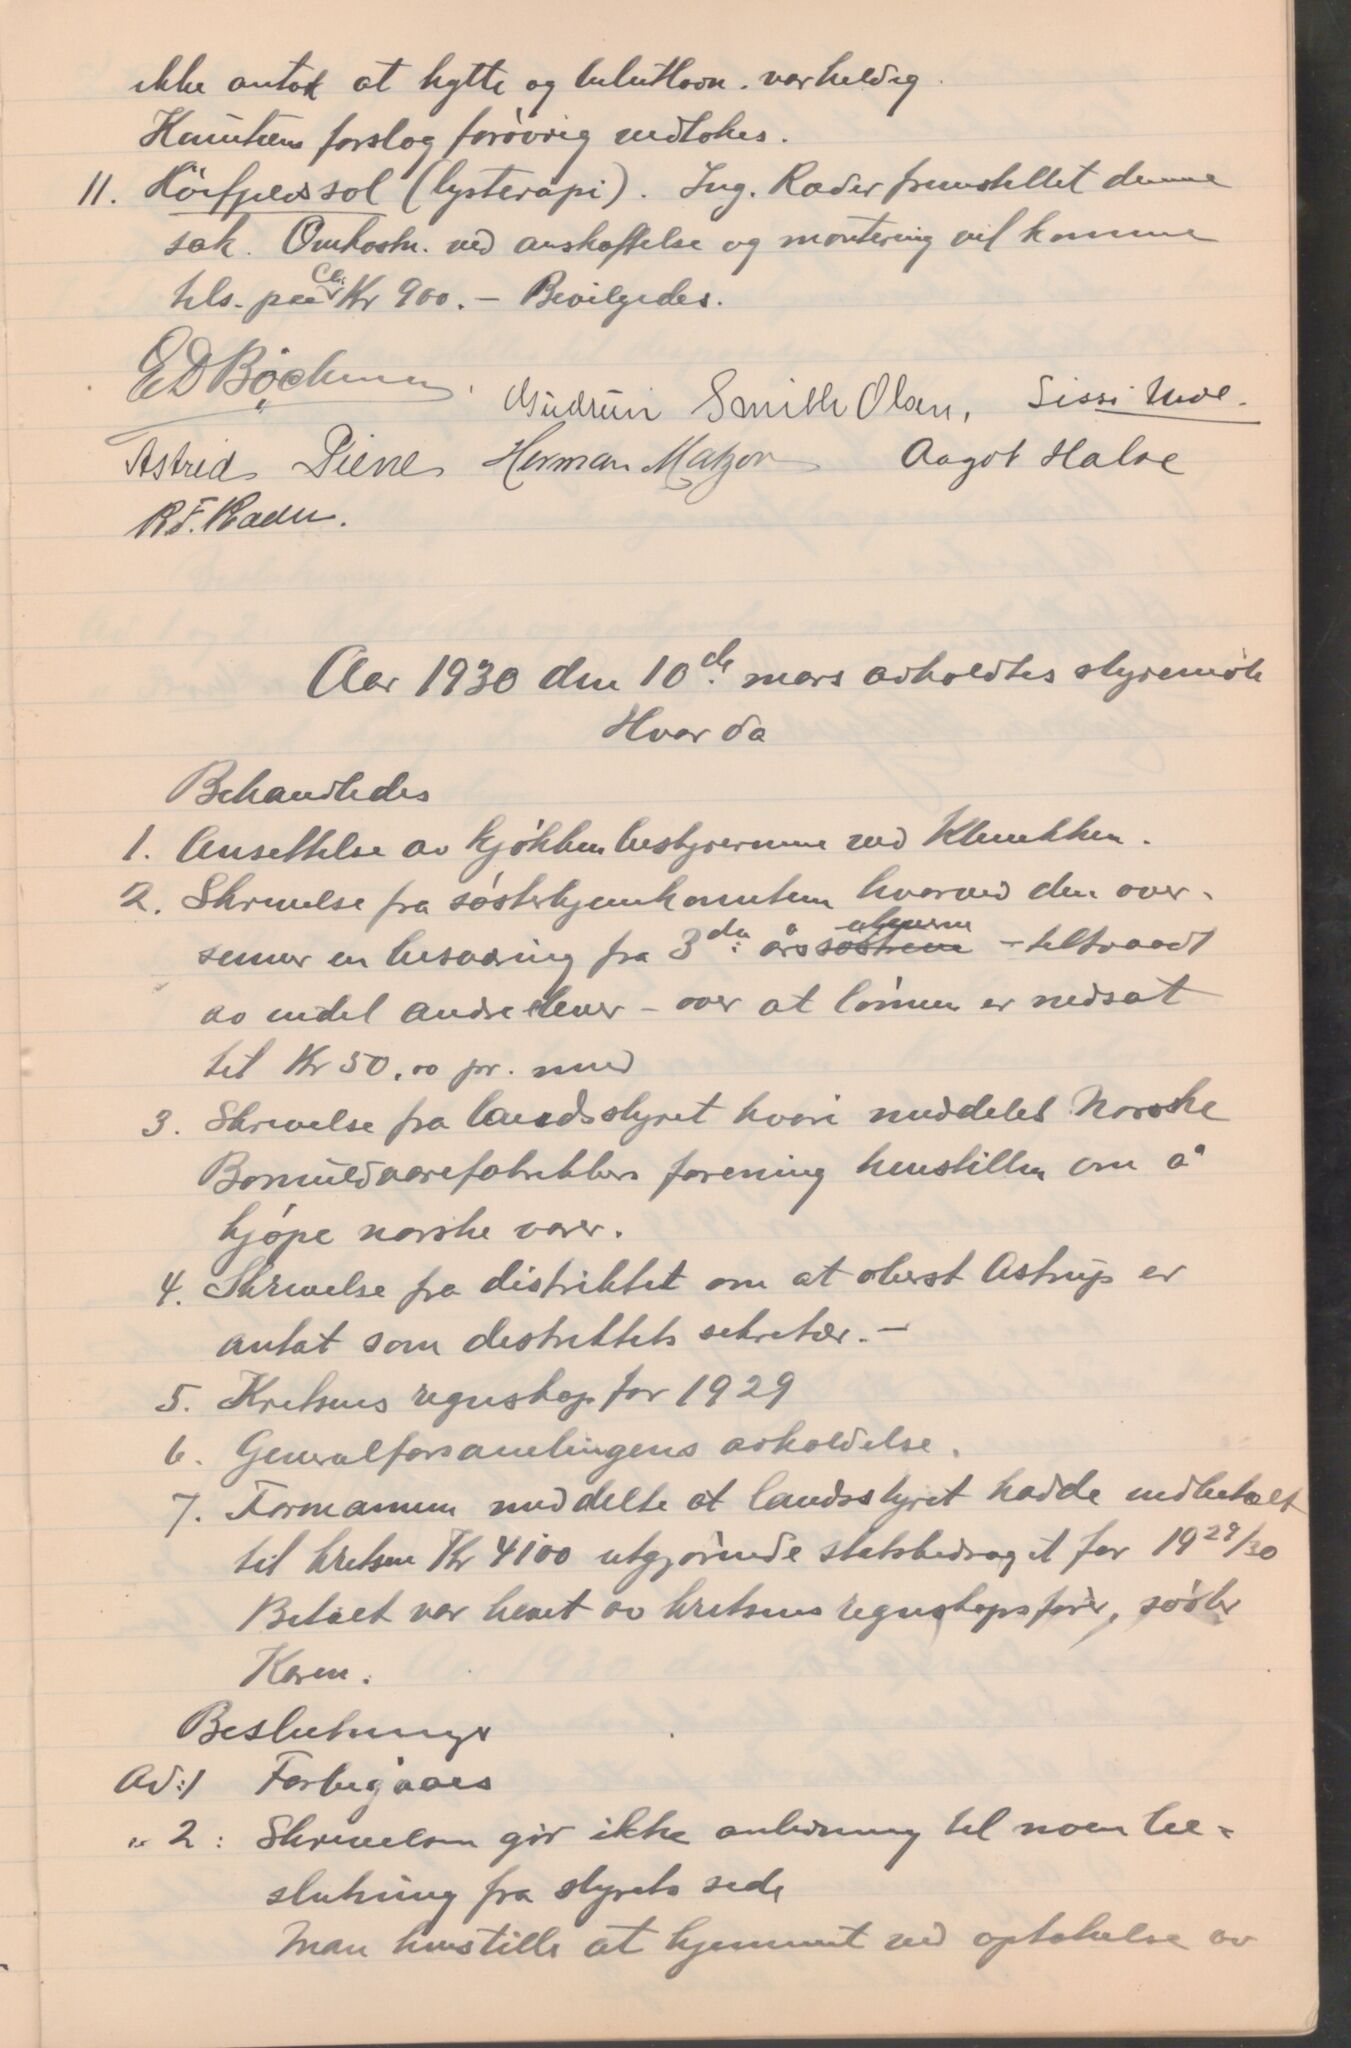 ikke antok at hytte og var heldig.
Komiteens forslag forøvrig vedtokes.
11. Höifjelssol (lysterapi). Ing. Rader fremstillet denne
sak. Omkostn. ved anskaffelse og montering vil komme
tils. paa Ca. Kr 900.- Bevilgedes.
E D Bøchman. Gudrun Smith Olsen, Sissi
Astrid Piene Herman Matzon Aagot Halse
R F. Rader.
Aar 1930 den 10de mars avholdtes styremöte
Hvor da
Behandledes
1. Ansettelse av kjökkenbestyrerinne ved Klinikken.
2. Skrivelse fra sösterhjemkomiteen hvorved den over-
sender en besværing fra 3de års söstrene elevene - tiltraadt
av endel andre elever - over at lönnen er nedsat
til Kr 50.00 pr. mnd
3. Skrivelse fra landsstyret hvori meddeles Norske
Bomuldvarefabrikkers forening henstillen om å
kjöpe norske varer.
4. Skrivelse fra distriktet om at oberst Astrup er
antat som distriktets sekretær. -
5. Kretsens regnskap for 1929
6. Generalforsamlingens avholdelse.
7. Formannen meddelte at landsstyret hadde indbetalt
til kretsen Kr 4100 utgjörende statsbidraget for 1929/30
Belöet var hevet av kretsens regnskapsförer, söster
Karen.
Beslutninger
Ad: 1 Forbigaaes
" 2: Skrivelsen gir ikke anledning til noen be-
slutning fra styrets side
Man henstille at hjemmet ved optakelse av